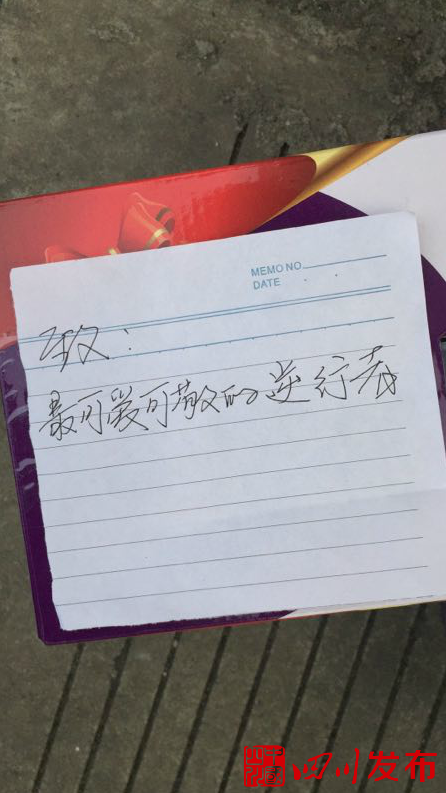 MEMO NO
DATE
致：
最可爱可敬的逆行者
四川发布